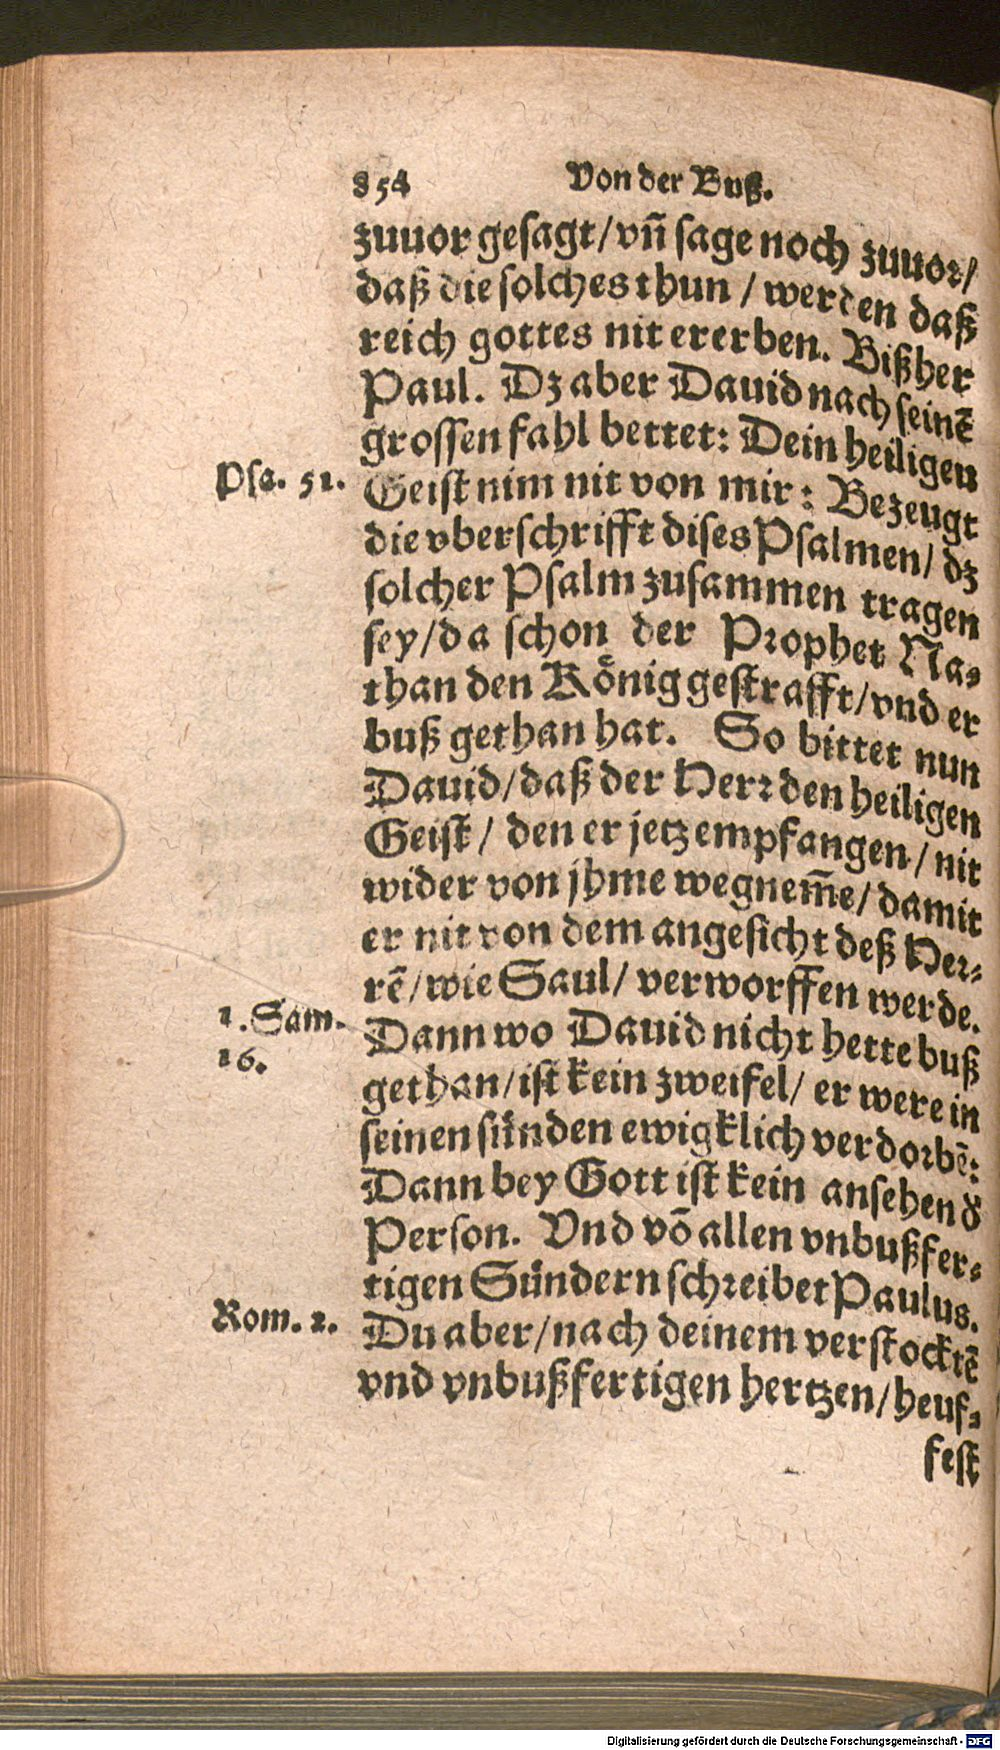 854 Von der Buß.
zuuor gesagt/vñ sage noch zuuor/
daß die solches thun / werden daß
reich gottes nit ererben. Bißher
Paul. Dz aber Dauid nach seinē
grossen fahl bettet: Dein heiligen
Psa. 51. Geist nim nit von mir: Bezeugt
die vberschrifft dises Psalmen/ dz
solcher Psalm zusammen tragen
sey/da schon der Prophet Na⸗
than den Koͤnig gestrafft/vnd er
buß gethan hat. So bittet nun
Dauid/daß der Herr den heiligen
Geist/ den er jetz empfangen/ nit
wider von jhme wegnem̄e/ damit
er nit von dem angesicht deß Her⸗
rē/wie Saul/ verworffen werde.
1. Sam. Dann wo Dauid nicht hette buß
16. gethan/ist kein zweifel/ er were in
seinen sünden ewigklich verdorbē:
Dann bey Gott ist kein ansehen ď
Person. Vnd vō allen vnbußfer⸗
tigen Sündern schreibet Paulus.
Rom. 2. Du aber/nach deinem verstocktē
vnd vnbußfertigen hertzen/heuf⸗
fest
Digitalisierung gefördert durch die Deutsche Forschungsgemeinschaft - DFG